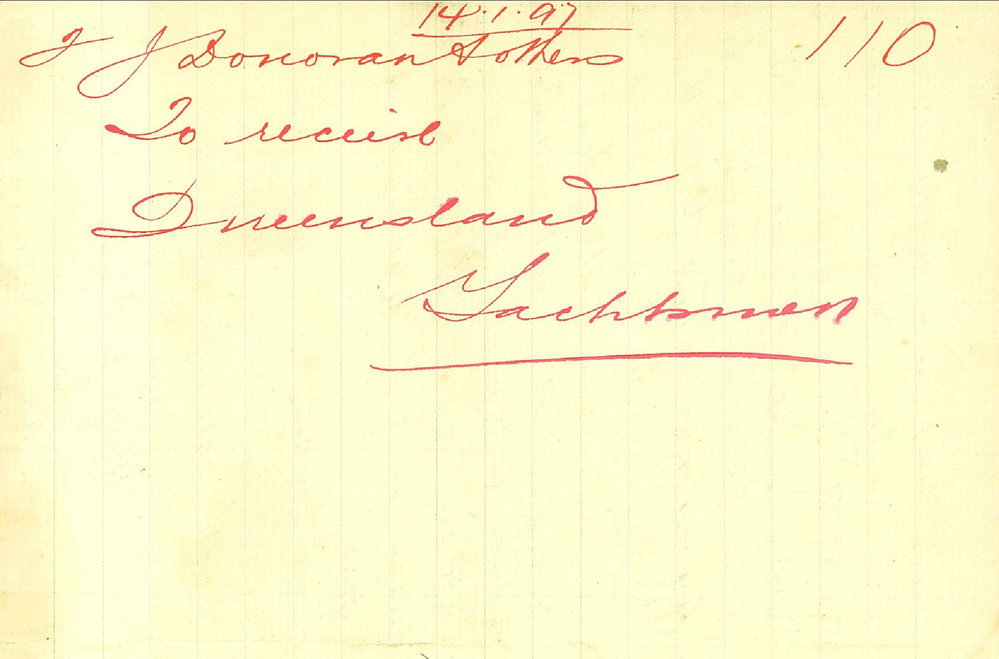 14.1.97
T J Donovan & others 110
To receive
Queensland
Yachtsmen